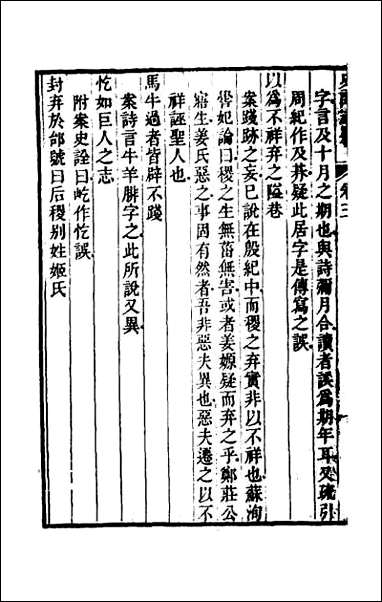 字言及十月之期也與詩彌月合讀者誤爲期年耳癸疏引
周紀作及朞疑此居字是傳寫之誤
以爲不祥弃之隘巷
案踐跡之妄已說在殷紀中而稷之弃實非以不祥也蘇洵
嚳妃論曰稷之生無菑無害或者姜嫄疑而弃之乎鄭莊公
寤生姜氏惡之事固有然者吾非惡夫異也惡夫遷之以不
祥誣聖人也
馬牛過者皆辟不踐
案詩言牛羊腓字之此所說又異
忔如巨人之志
附案史詮曰屹作忔誤
封弃於邰號曰后稷別姓姬氏